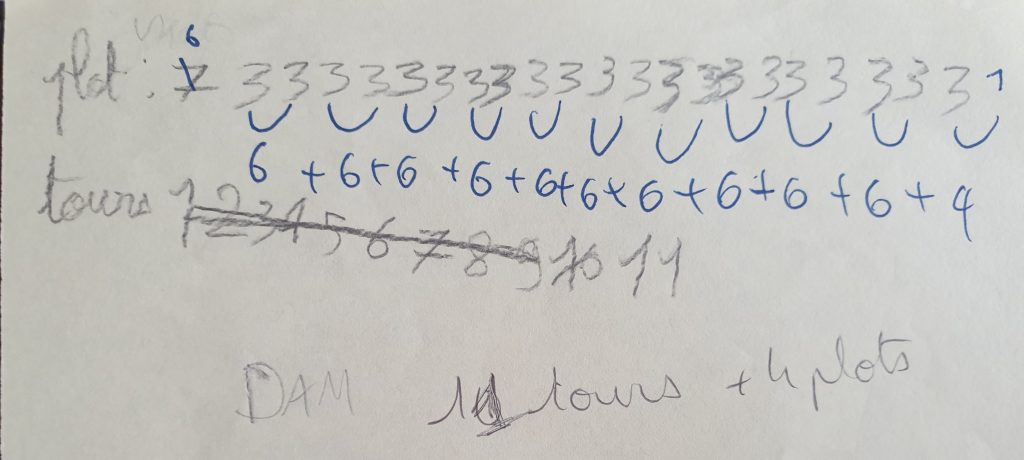 6
plot : 7 3 3 3 3 3 3 3 3 3 3 3 3 3 3 3 3 3 3 3 3 3 1
6 + 6 + 6 + 6 + 6 + 6 + 6 + 6 + 6 + 6 + 4
tours 1 2 3 4 5 6 7 8 9 10 11
DAM 11 tours + 4 plots